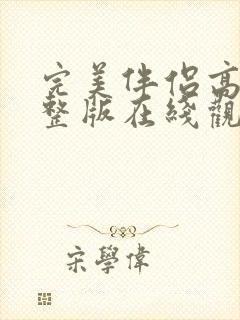 完美伴侣高
整版在綫觀
宋學偉